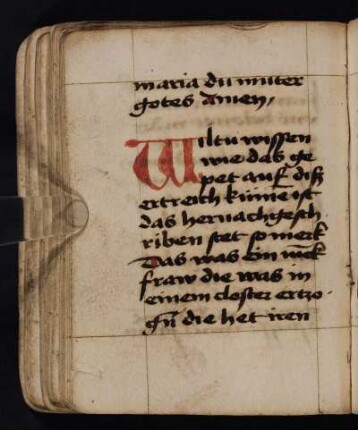 maria du muter
gotes Amen,
Wiltu wissen
wie das ge
pet auf disz
ertreich kume ist
das hernachgesch
riben stet so merk
Das was ein
fraw die was in
einem closter ertzo
gn̄ die het iren